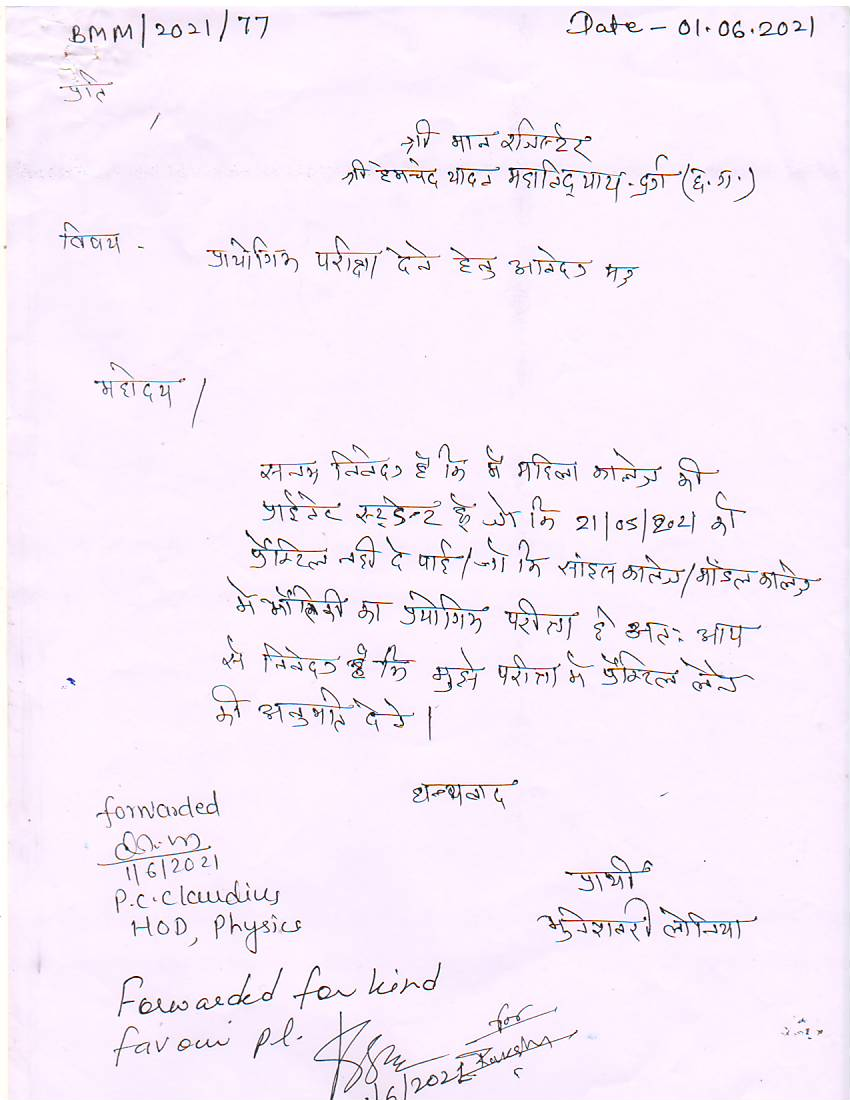 BMM/2021/77
Date - 01.06.2021
प्रति
,
श्री मान रजिस्टर
श्री हेमचंद यादव महाविद्याय - दुर्ग (छ.ग.)
विषय - प्रायोगिक परीक्षा देने हेतु आवेदन पत्र
महोदय /
सनम्र निवेदन है कि मैं महिला कालेज की
प्राईवेट स्टूडेन्ट हूं जो कि 21/05/2021 को
प्रैक्टिल नही दे पाई / जो कि सांइस कालेज / मॉडल कालेज
मे भौतिकी का प्रयोगिक परीक्षा है अतः आप
से निवेदन है कि मुझे परीक्षा मे प्रैक्टिल लेने
की अनुमति देवे।
धन्यवाद
forwarded
1/6/2021
P.C. Claudius
HOD, Physics
प्रार्थी
मुनेश्वरी लोनिया
Forwarded for kind
favour pl.
for
/6/2021